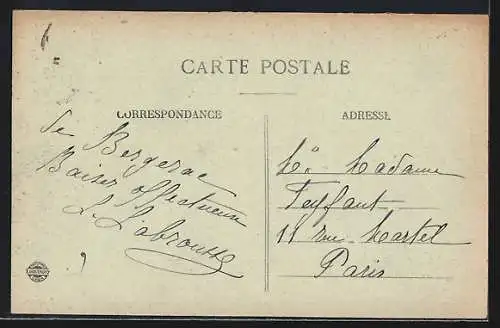 CARTE POSTALE
CORRESPONDANCE
De Bergerac
Baiser affectueux
L. Labrousse
ADRESSE
Madame
Teyffant
11 rue Martel
Paris